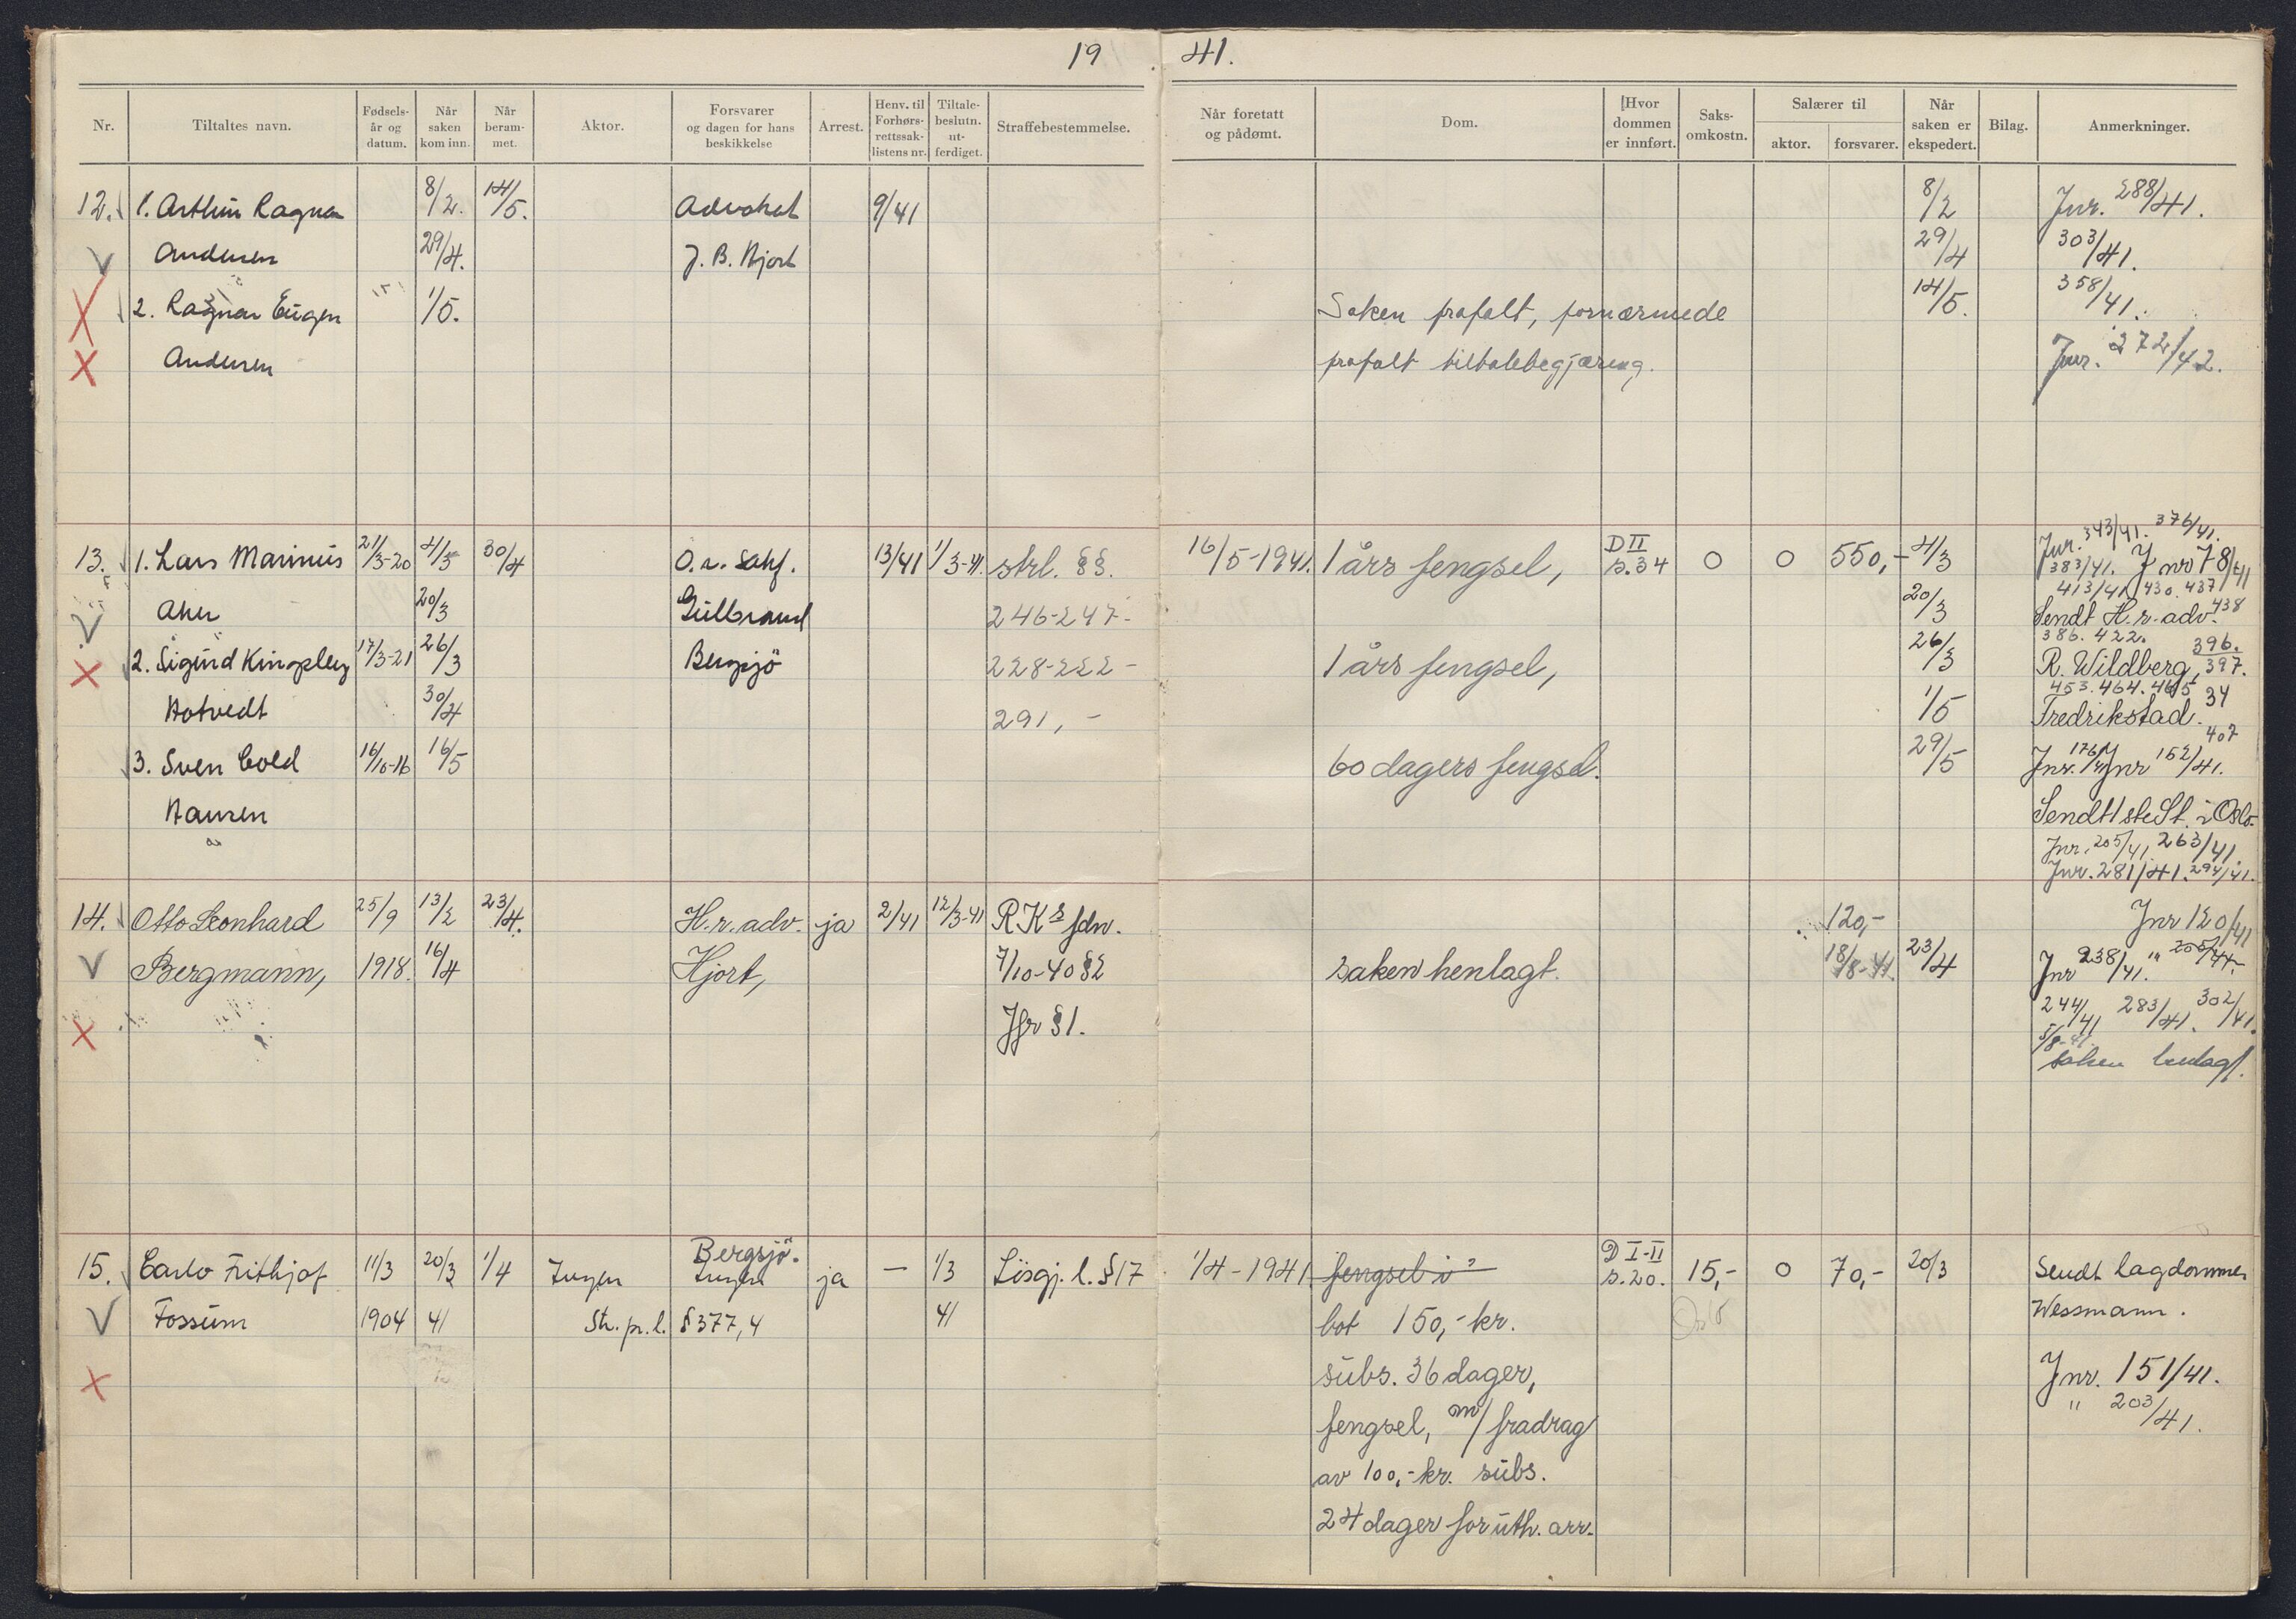 19 41.
Nr. Tiltaltes navn. Fødsels-år og datum. Når saken kom inn. Når beram-met. Aktor. Forsvarer og dagen for hans beskikkelse Arrest. Henv. til Forhørs-rettssak-listens nr. Tiltale-beslutn. ut-ferdiget. Straffebestemmelse. Når foretatt og pådømt. Dom. Hvor dommen er innført. Saks-omkostn. Salærer til aktor. forsvarer. Når saken er ekspedert. Bilag. Anmerkninger.
12. 1. Arthur Ragnar 8/2. 14/5. Advokat 9/41 8/2 Jnr. 288/41.
Andersen 29/4. J. B. Hjort 29/4 303/41.
2. Ragnar Eugen 1/5. Saken frafalt, fornærmede 14/5. 358/41.
Andersen frafalt tiltalebegjæring. Jnr. 272/42.
376/41.
13. 1. Lars Marinus 21/3-20 4/3 30/4 O.r. sakf. 13/41 1/3-41. strl. §§. 16/5-1941. 1 års fengsel, D II s. 34 0 0 550,- 4/3 Jnr. 343/41. J nr 78/41
383/41.
413/41 430. 437/
Aker 20/3 Gulbrand 246-247- 20/3 Sendt H.r.adv. 438
386. 422. 396.
2. Sigurd Kingsley 17/3-21 26/3 Bergsjö 228-222- 1 års fengsel, 26/3 R. Wildberg, 397.
453. 464. 465 34
Hotvedt 30/4 291, - 1/5 Fredrikstad.
407
3. Sven Cold 16/10-16 16/5 60 dagers fengsel. 29/5 Jnr. 176/41 Jnr 152/41.
Hansen Sendt 1ste St. i Oslo.
Jnr. 205/41, 263/41.
Jnr. 281/41. 294/41.
14. Otto Leonhard 25/9 13/2 23/4. H.r.adv. ja 2/41 12/3-41 R Ks fdn. 120,- Jnr 120/41
Bergmann, 1918. 16/4 Hjort, 7/10-40 §2 saken henlagt. 18/8-41. 23/4 Jnr 238/41. "
Jfr §1. 244/41 283/41. 302/41.
5/8-41.
saken henlagt.
Bergsjö.
15. Carlo Frithjof 11/3 20/3 1/4 Ingen Ingen ja — 1/3 Lösgj. l. §17 1/4-1941. fengsel i D I-II s. 20. 15,- 0 70,- 20/3 Sendt lagdommer
Fossum 1904 41 Str. pr. l. §377,4 41 bot 150,- kr. Wessmann.
subs. 36 dager, Jnr. 151/41.
fengsel, m/fradrag " 203/41.
av 100,- kr. subs.
24 dager for uth. arr.